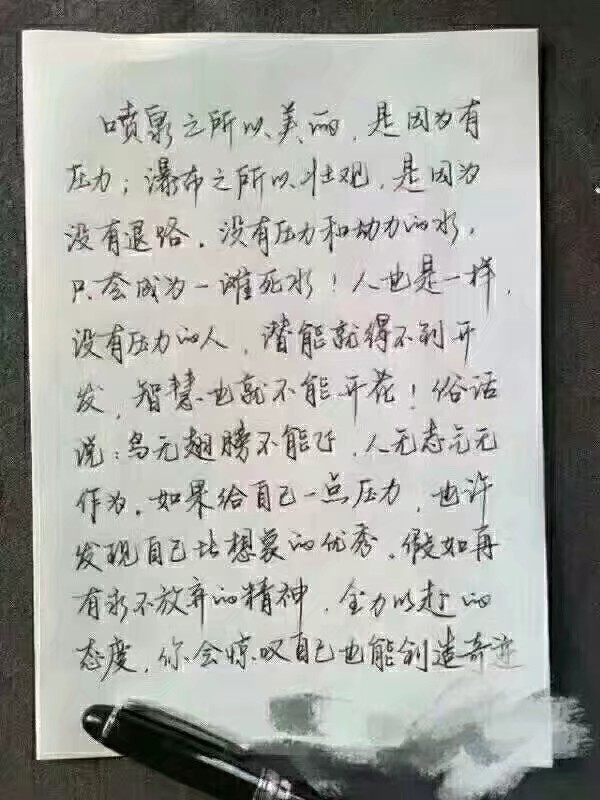 喷泉之所以美丽，是因为有
压力；瀑布之所以壮观，是因为
没有退路。没有压力和动力的水，
只会成为一滩死水！人也是一样，
没有压力的人，潜能就得不到开
发，智慧也就不能开花！俗话
说：鸟无翅膀不能飞，人无志气无
作为。如果给自己一点压力，也许
发现自己比想象的优秀。假如再
有永不放弃的精神，全力以赴的
态度，你会惊叹自己也能创造奇迹